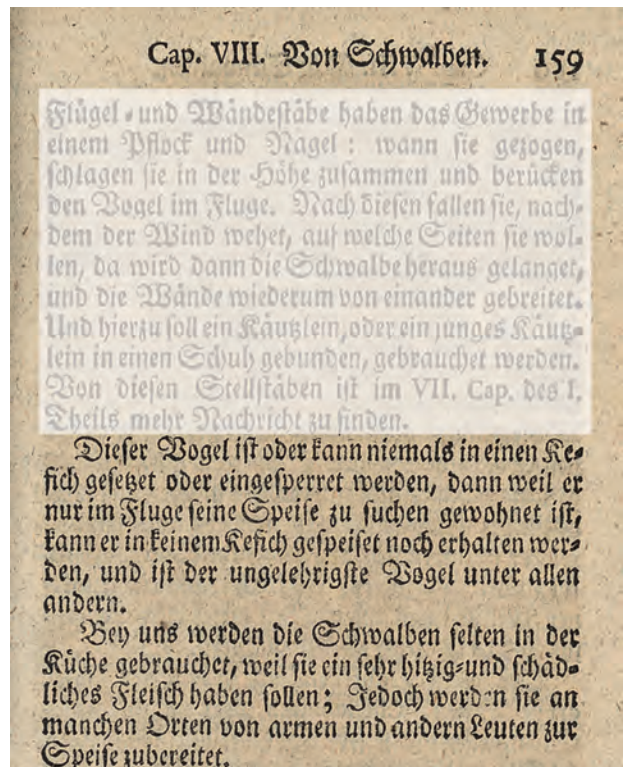 Cap. VIII. Von Schwalben. 159
Flügel-und Wändestäbe haben das Gewerbe in
einem Pflock und Nagel: wann sie gezogen,
schlagen sie in der Höhe zusammen und berücken
den Vogel im Fluge. Nach diesen fallen sie, nach-
dem der Wind wehet, auf welche Seiten sie wol-
len, da wird dann die Schwalbe heraus gelanget,
und die Wände wiederum von einander gebreitet.
Und hierzu soll ein Käutzlein, oder ein junges Käutz-
lein in einen Schuh gebunden, gebrauchet werden.
Von diesen Stellstäben ist im VII. Cap. des I.
Theils mehr Nachricht zu finden.
Dieser Vogel ist oder kann niemals in einen Ke-
fich gesetzet oder eingesperret werden, dann weil er
nur im Fluge seine Speise zu suchen gewohnet ist,
kann er in keinem Kefich gespeiset noch erhalten wer-
den, und ist der ungelehrigste Vogel unter allen
andern.
Bey uns werden die Schwalben selten in der
Küche gebrauchet, weil sie ein sehr hitzig-und schäd-
liches Fleisch haben sollen; Jedoch werden sie an
manchen Orten von armen und andern Leuten zur
Speise zubereitet.